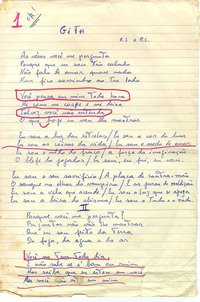 1 ok!
GITA
R.S. e P.C.
Às vezes você me pergunta
Porque eu sou tão calado
Não falo de amor quase nada
Nem fico sorrindo ao teu lado
Você pensa em mim toda hora
Me come me cospe e me deixa
Talvez você não entenda
O que hoje vou lhe mostrar
Eu sou a luz das estrelas / Eu sou a cor do luar
Eu sou as coisas da vida / Eu sou o medo de amar
Eu sou o medo do fraco / a força da imaginação
O blefe do jogador / eu sou, eu fui, eu vou
Eu sou o seu sacrifício / A placa de contra-mão
O sangue no olhar do vampiro / E as juras de maldição
Eu sou a vela que acende / eu sou a luz que se apaga
Eu sou a beira do abismo / Eu sou o tudo e o nada
II
Porque você me pergunta?
Perguntas não vão lhe mostrar
Que eu sou feito da terra
Do fogo, da água e do ar
Você me tem todo dia
E não sabe se é bom ou ruim
Mas saiba que eu estou em você
Mas você não está em mim